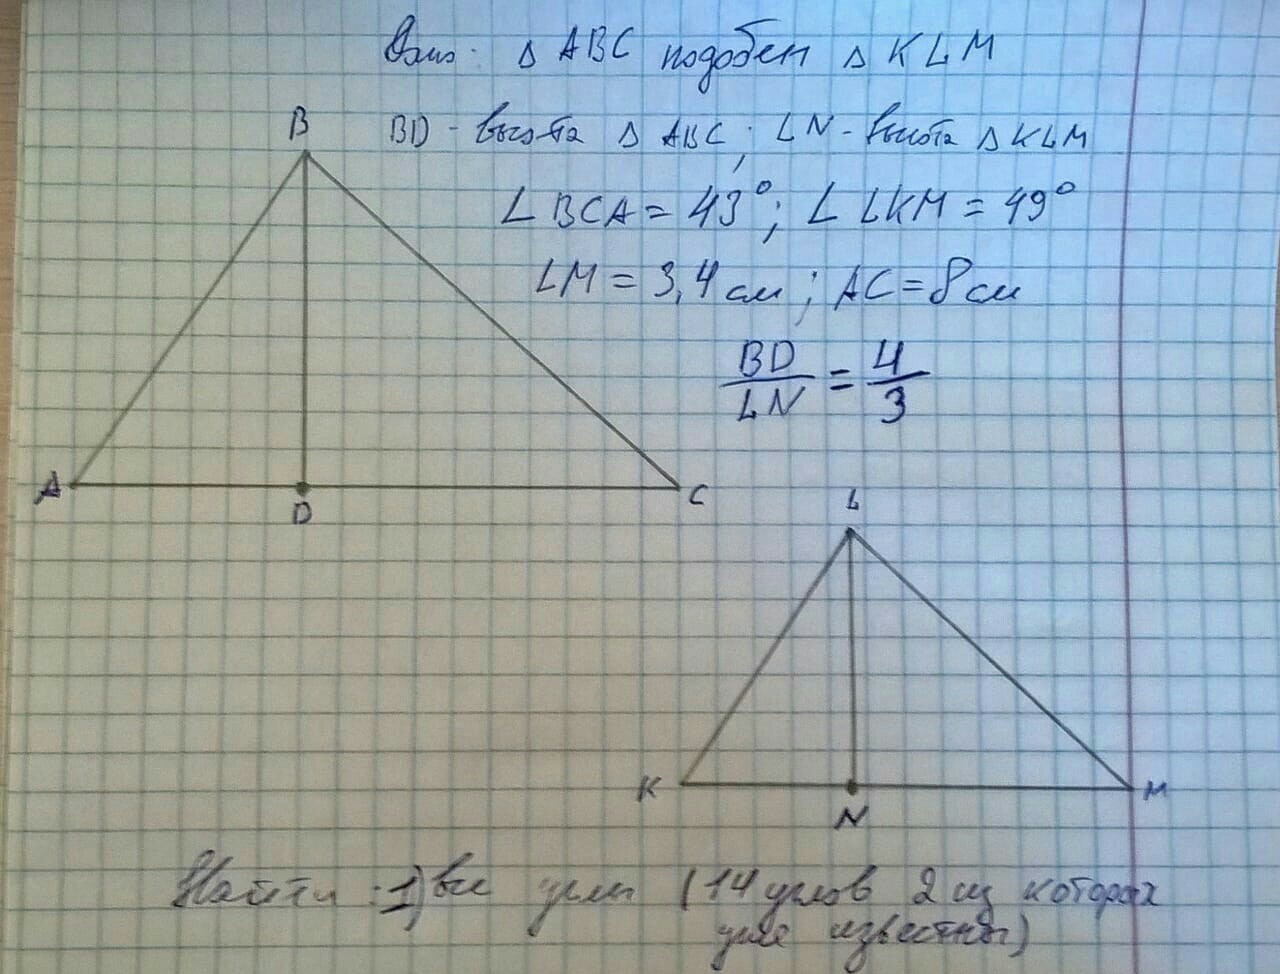 Дано: △ ABC подобен △ KLM
B
BD - высота △ ABC; LN - высота △ KLM
∠ BCA = 43°; ∠ LKM = 49°
LM = 3,4 см; AC = 8 см
BD/LN = 4/3
A
D
C
L
K
N
M
Найти: 1) все углы (14 углов 2 из которых
уже известны)